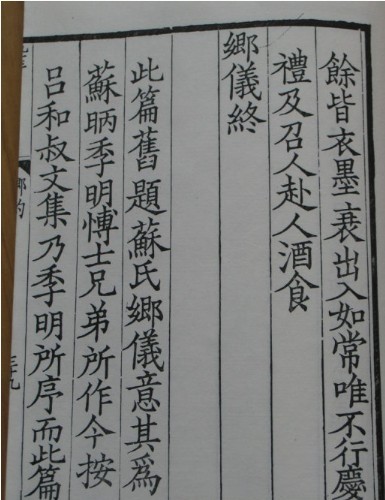 餘皆衣墨衰出入如常唯不行慶
禮及召人赴人酒食
鄉儀終
此篇舊題蘇氏鄉儀意其爲
蘇昞季明愽士兄弟所作今按
呂和叔文集乃季明所序而此篇
鄉約
三十九